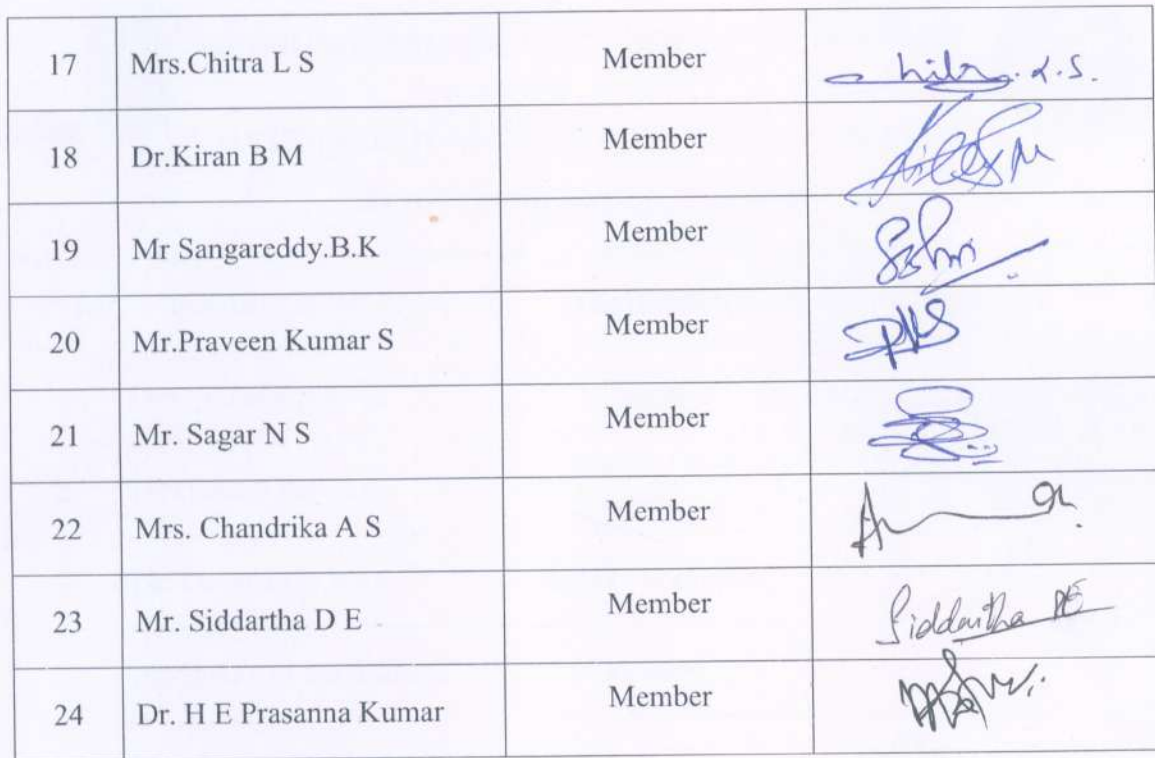 17 Mrs.Chitra L S Member
18 Dr.Kiran B M Member
19 Mr Sangareddy.B.K Member
20 Mr.Praveen Kumar S Member
21 Mr. Sagar N S Member
22 Mrs. Chandrika A S Member
23 Mr. Siddartha D E Member Siddartha DE
24 Dr. H E Prasanna Kumar Member